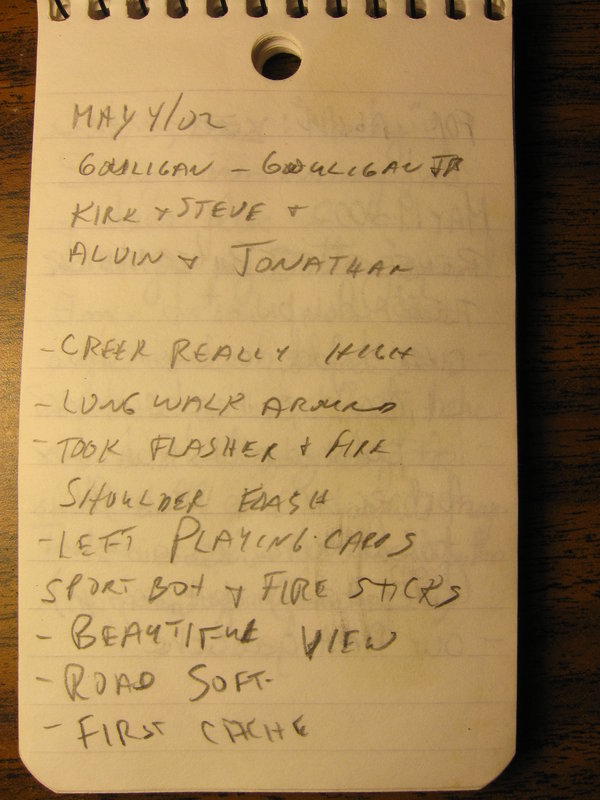 MAY 4/02
GOULIGAN - GOULIGAN JR
KIRK + STEVE +
ALVIN + JONATHAN
- CREEK REALLY HIGH
- LONG WALK AROUND
- TOOK FLASHER + FIRE
SHOULDER FLASH
- LEFT PLAYING CARDS
SPORT BOX + FIRE STICKS
- BEAUTIFUL VIEW
- ROAD SOFT.
- FIRST CACHE